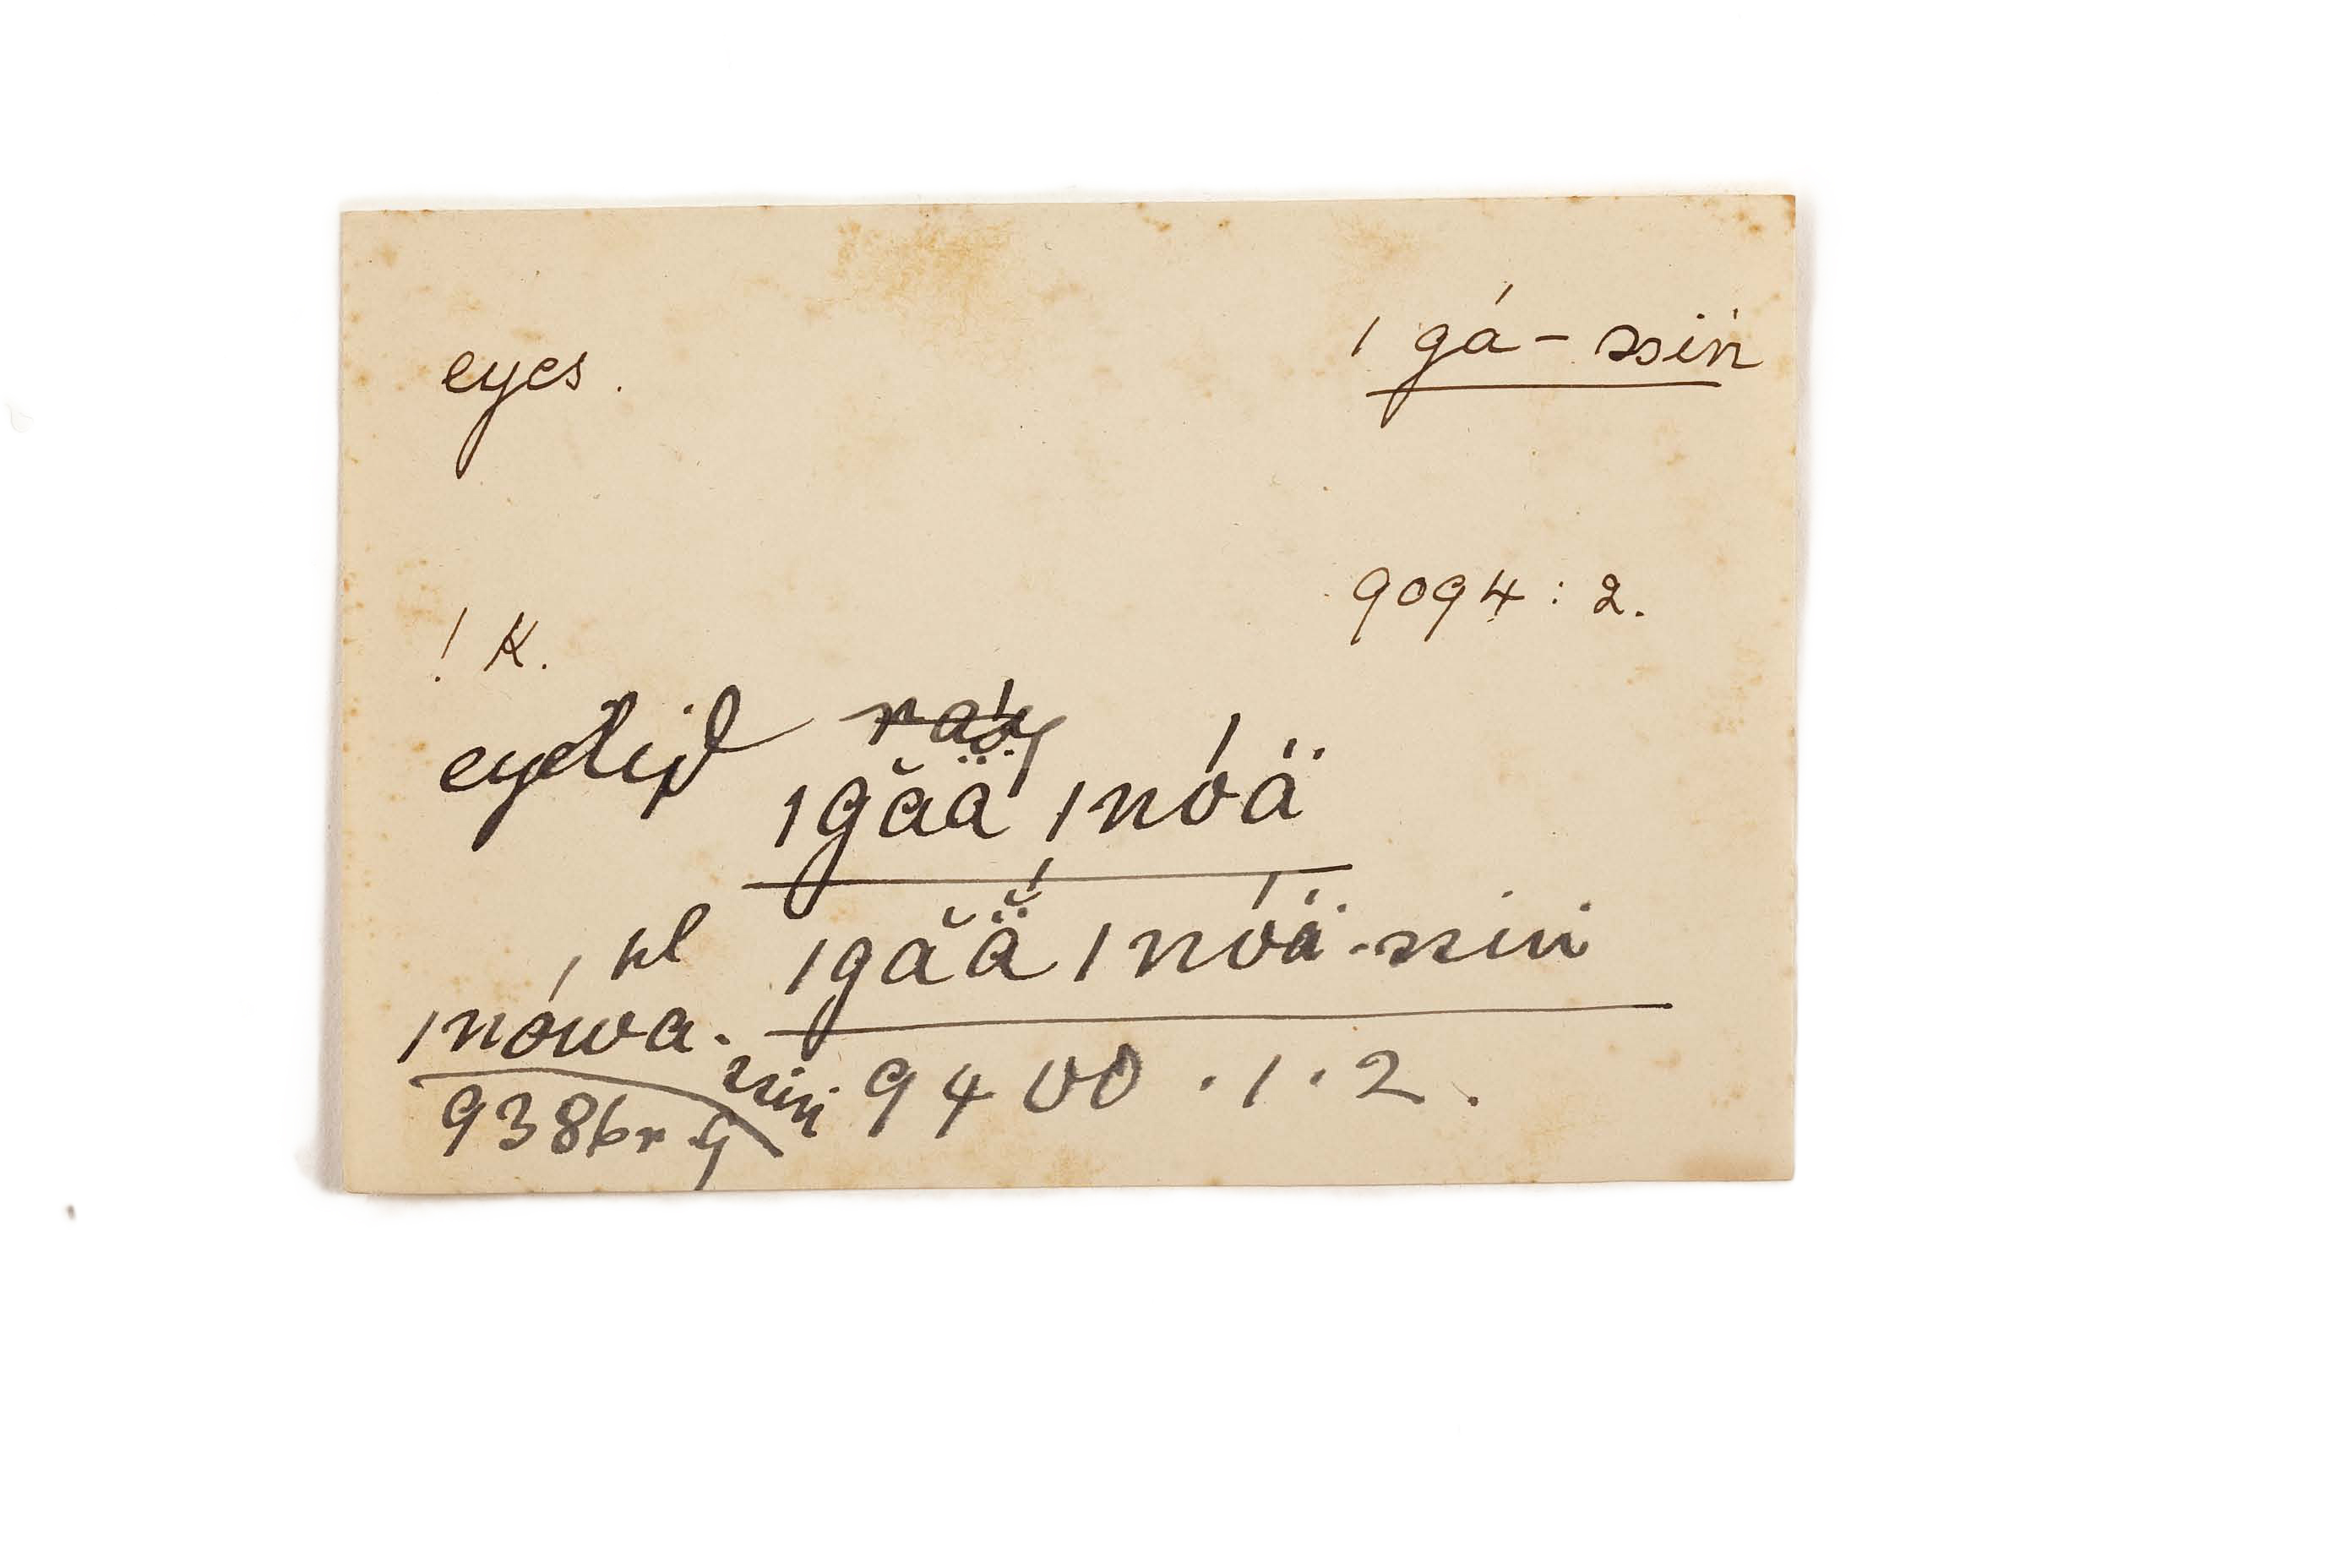 eyes. |gá-ssiṅ
9094:2.
! K.
eyelid
|găä̆ |nóä
pl |găä̆́ |nóä-ssiṅ
|nówa-ssiṅ 9400.1.2.
9386r